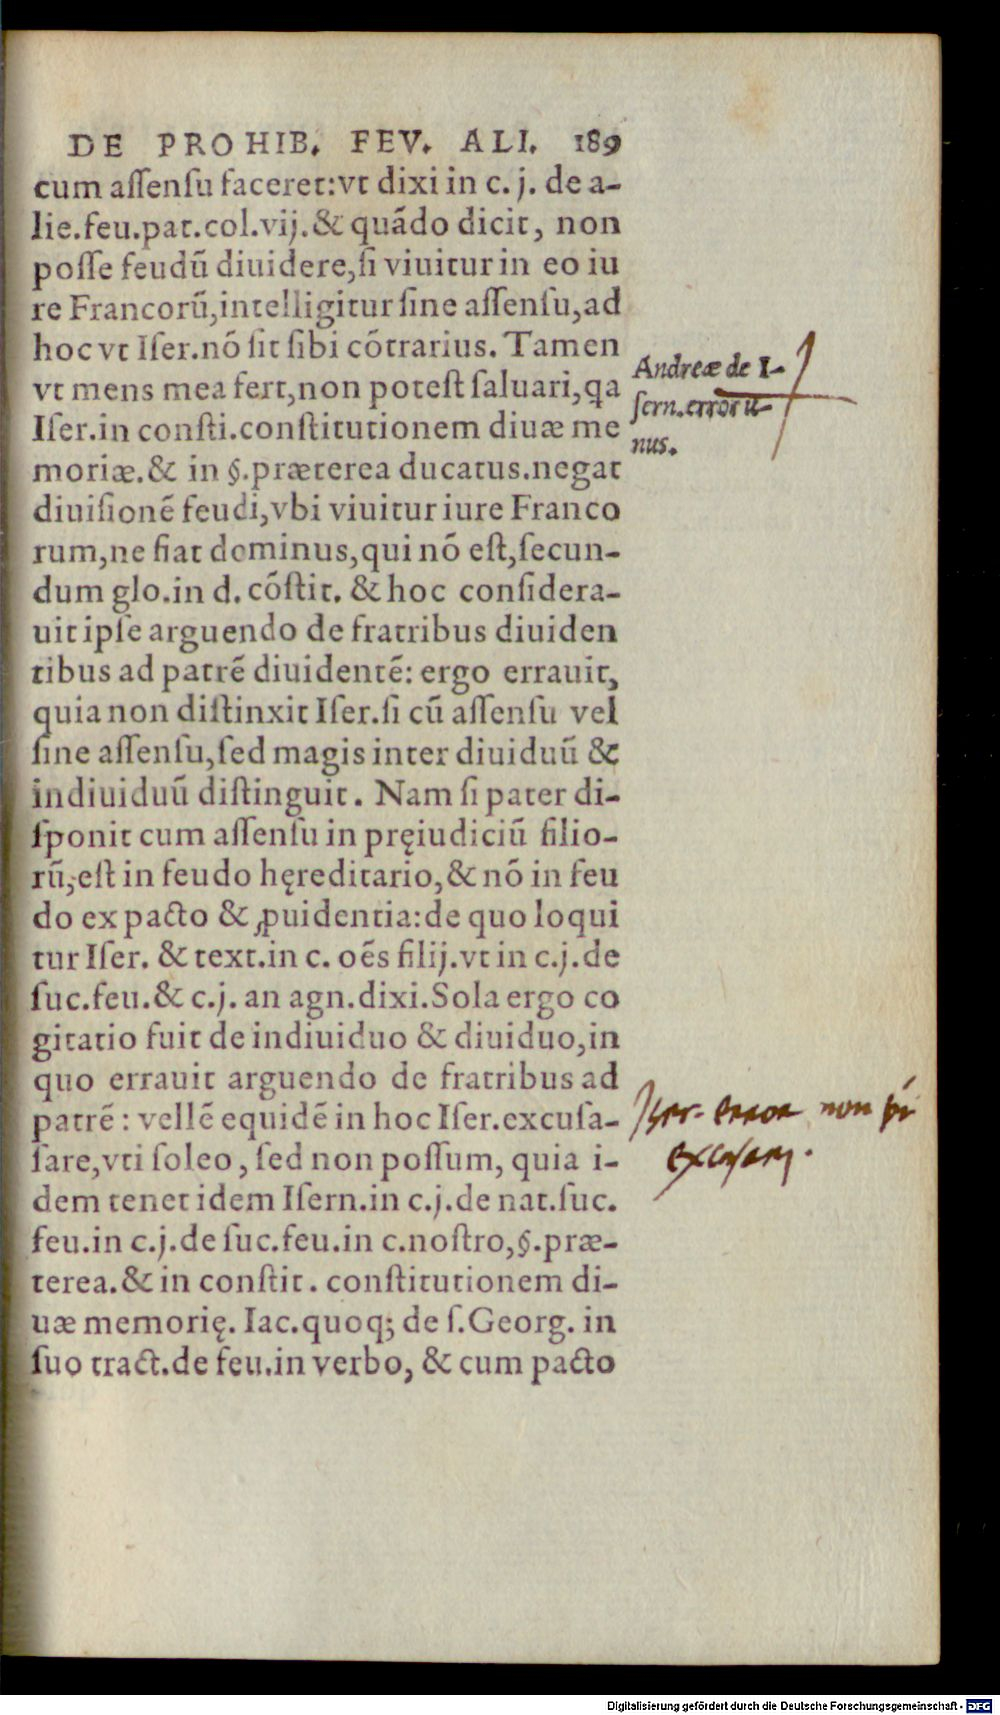 DE PROHIB. FEV. ALI. 189
cum aſſenſu faceret:vt dixi in c. j. de a-
lie.feu.pat.col.vij.& quãdo dicit, non
poſſe feudũ diuidere,ſi viuitur in eo iu
re Francorũ,intelligitur ſine aſſenſu,ad
hoc vt Iſer.nõ ſit ſibi cõtrarius. Tamen
vt mens mea fert,non poteſt ſaluari,qa
Iſer.in conſti.conſtitutionem diuæ me
moriæ.& in §.præterea ducatus.negat
diuiſionẽ feudi,vbi viuitur iure Franco
rum,ne fiat dominus,qui nõ eſt,ſecun-
dum glo.in d. cõſtit. & hoc conſidera-
uit ipſe arguendo de fratribus diuiden
tibus ad patrẽ diuidentẽ: ergo errauit,
quia non diſtinxit Iſer.ſi cũ aſſenſu vel
ſine aſſenſu,ſed magis inter diuiduũ &
indiuiduũ diſtinguit. Nam ſi pater di-
ſponit cum aſſenſu in pręiudiciũ filio-
rũ,eſt in feudo hęreditario,& nõ in feu
do ex pacto & ꝓuidentia:de quo loqui
tur Iſer. & text.in c. oẽs filij.vt in c.j.de
ſuc.feu.& c.j. an agn.dixi.Sola ergo co
gitatio fuit de indiuiduo & diuiduo,in
quo errauit arguendo de fratribus ad
patrẽ: vellẽ equidẽ in hoc Iſer.excuſa-
ſare,vti ſoleo, ſed non poſſum, quia i-
dem tenet idem Iſern.in c.j.de nat.ſuc.
feu.in c.j.de ſuc.feu.in c.noſtro,§.præ-
terea.& in conſtit. conſtitutionem di-
uæ memorię. Iac.quoq; de ſ.Georg. in
ſuo tract.de feu.in verbo, & cum pacto
Andreæ de I-
ſern.error u-
nus.
Iser. error non pt
excusari.
Digitalisierung gefördert durch die Deutsche Forschungsgemeinschaft - DFG